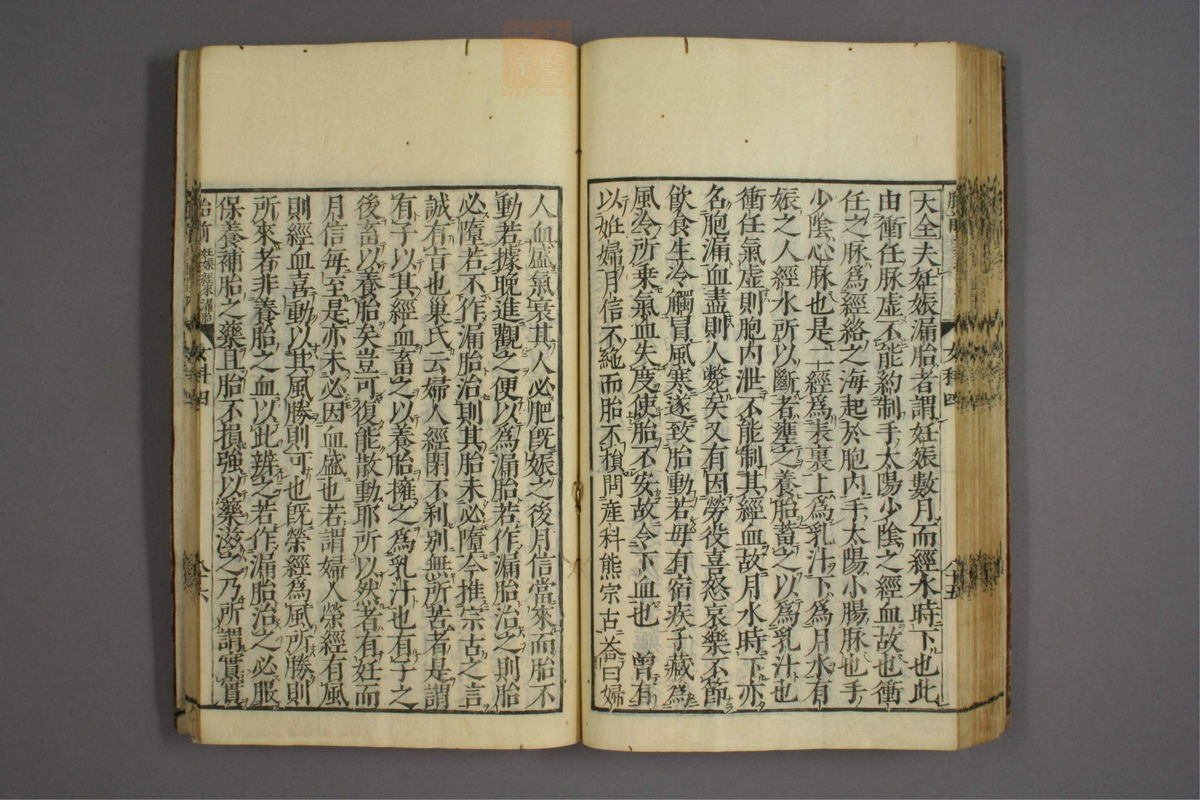 大全夫妊娠漏胎者謂妊娠數月而經水時下也此
由衝任脉虚不能約制手太陽少陰之經血故也衝
任之脉爲經絡之海起於胞内手太陽小腸脉也手
少陰心脉也是二經爲表裏上爲乳汁下爲月水有
娠之人經水所以斷者壅之養胎蓄之以爲乳汁也
衝任氣虚則胞内泄不能制其經血故月水時下亦
名胞漏血盡則人斃矣又有因勞役喜怒哀樂不節
飲食生冷觸冒風寒遂致胎動若母有宿疾子藏爲
風冷所乗氣血失度使胎不安故令下血也 曾有
以妊婦月信不絶而胎不損問産科熊宗古荅曰婦
人血盛氣衰其人必肥既娠之後月信當來而胎不
動若據晚進觀之便以爲漏胎若作漏胎治之則胎
必墮若不作漏胎治則其胎未必墮今推宗古之言
誠有旨也巢氏云婦人經閉不利别無所苦者是謂
有子以其經血畜之以養胎擁之爲乳汁也有子之
後畜以養胎矣豈可復能散動耶所以然者有妊而
月信毎至是亦未必因血盛也若謂婦人榮經有風
則經血喜動以其風勝則可也既榮經爲風所勝則
所來者非養胎之血以此辨之若作漏胎治之必服
保養補胎之藥且胎不損強以藥滋之乃所謂實實
胎前
女科四